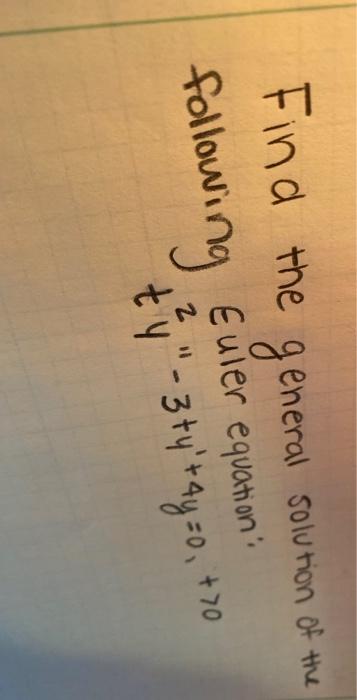 Find the general solution of the
following Euler equation:
t²y" - 3ty' + 4y = 0, t>0